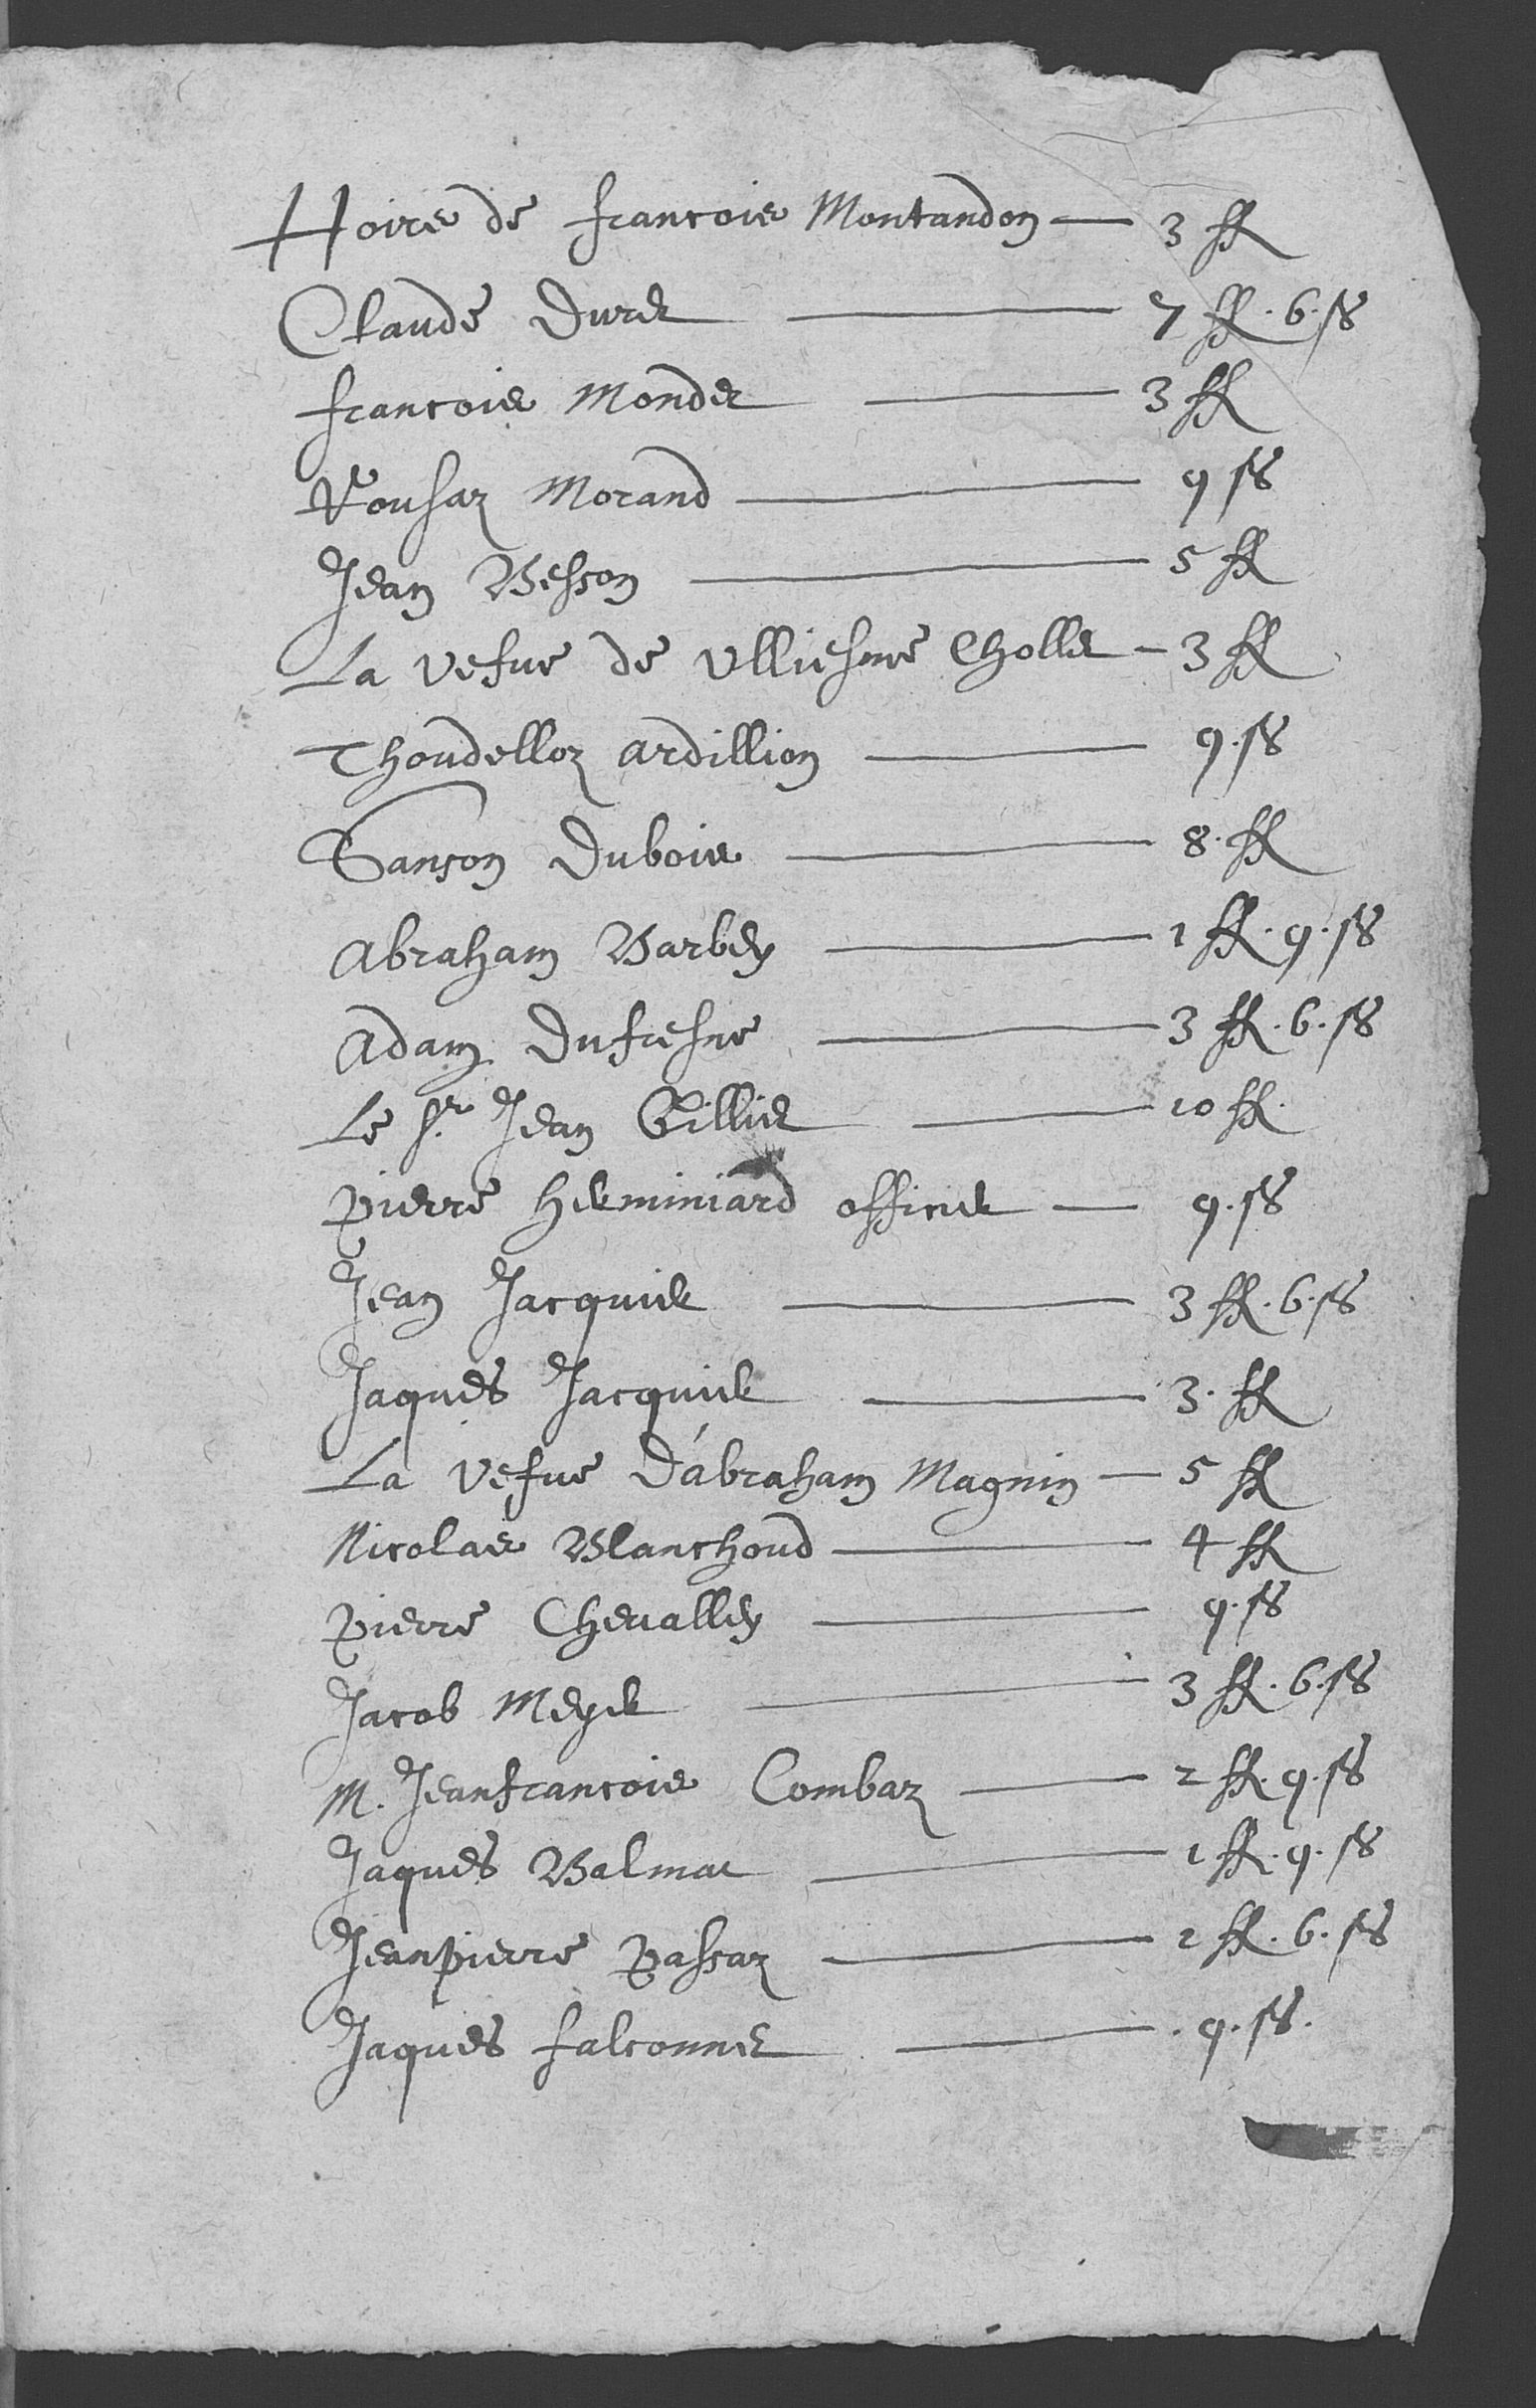 Hoirs de francois Montandon — 3 ff
Claude Duret — 7 ff. 6. ss
francois Mondet — 3 ff
Rousaz Morand — 9 ss
Jean Besson — 5 ff
La vefve de Ulliesme Chollet — 3 ff
Thoudelloz ardillion — 9. ss
Sanson Dubois — 8. ff
Abraham Barbey — 1 ff. 9. ss
Adam Dufresne — 3 ff. 6. ss
Le Sr. Jean Gilliet — 10 ff.
Pierre herminiard officier — 9. ss
Jean Jacquier — 3 ff. 6. ss
Jaques Jacquier — 3. ff
La vefve d'abraham Magnin — 5 ff
Nicolas Blanchoud — 4 ff
Pierre Chevalley — 9. ss
Jacob Meyer — 3 ff. 6. ss
M. Jeanfrancois Combaz — 2 ff. 9. ss
Jaques Balmat — 1 ff. 9. ss
Jeanpierre Passaz — 2 ff. 6. ss
Jaques falconnet — . 9. ss.